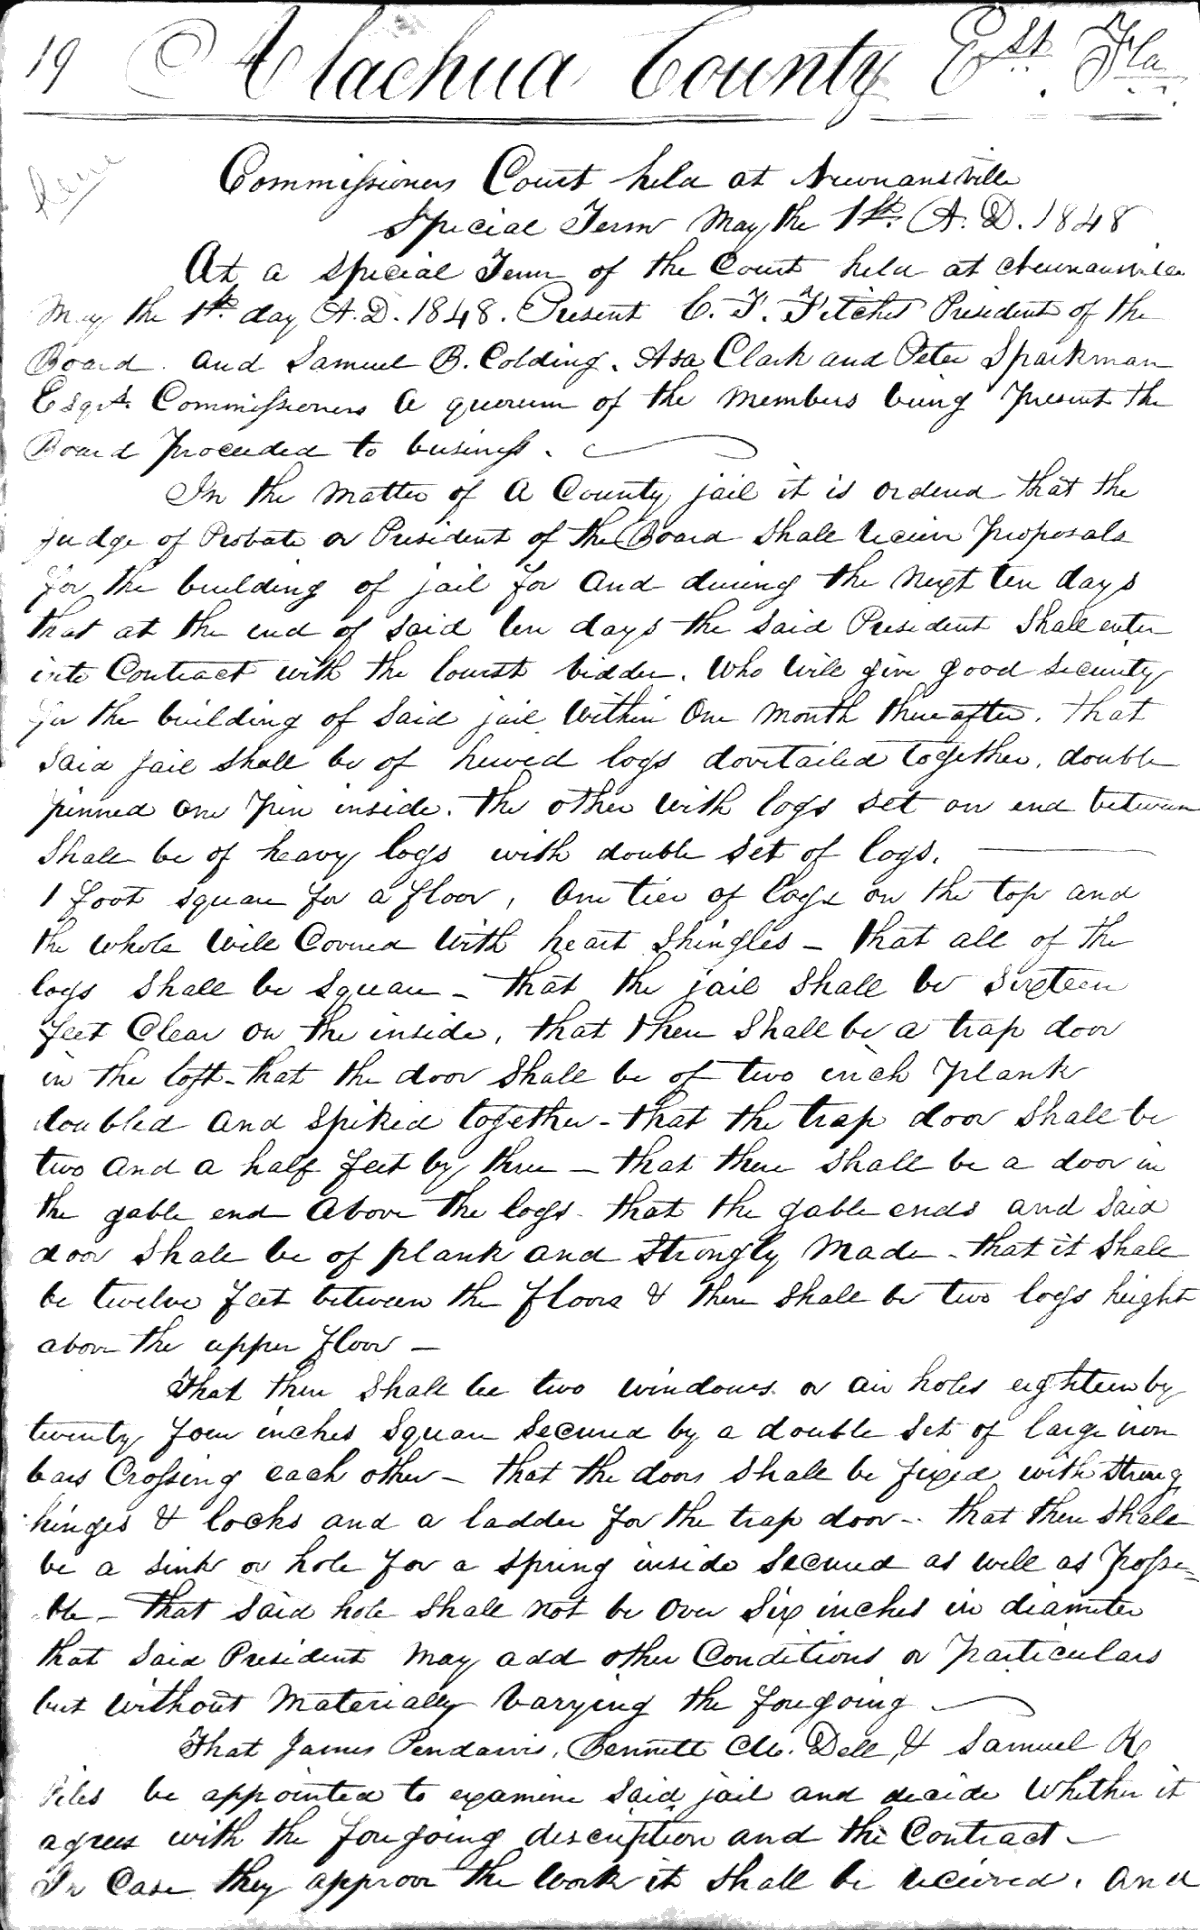 19 Alachua County Est. Fla.
Commissioners Court held at Newnansville
Special Term May the 1st. A. D. 1848
At a special Term of the Court held at Newnansville
May the 1st. day A.D. 1848. Present C. F. Fitchet President of the
Board. and Samuel B. Colding, Asa Clark and Peter Sparkman
Esqrs. Commissioners a quorum of the members being present the
Board proceeded to business.
In the matter of a County jail it is ordered that the
judge of Probate or President of the Board shall recieve proposals
for the building of jail for and during the next ten days
that at the end of said ten days the said President shall enter
into Contract with the lowest bidder. who will give good security
for the building of said jail within one month thereafter. that
said jail shall be of hewed logs dovetailed together, double
pinned one pin inside. the other with logs set on end between
shall be of heavy logs with double set of logs.
1 foot square for a floor, one tier of logs on the top and
the whole will covered with heart shingles – that all of the
logs shall be square – that the jail shall be sixteen
feet clear on the inside, that there shall be a trap door
in the loft – that the door shall be of two inch plank
doubled and spiked together – that the trap door shall be
two and a half feet by three – that there shall be a door in
the gable end above the logs – that the gable ends and said
door shall be of plank and strongly made – that it shall
be twelve feet between the floors & there shall be two logs height
above the upper floor –
That there shall be two windows or air holes eighteen by
twenty four inches square secured by a double set of large iron
bars crossing each other – that the doors shall be fixed with strong
hinges & locks and a ladder for the trap door – that there shall
be a sink or hole for a spring inside secured as well as possi=
ble – that said hole shall not be over six inches in diameter
that said President may add other Conditions or particulars
but without materially varying the foregoing
That James Pendarvis, Bennett M. Dell, & Samuel R
Piles be appointed to examine said jail and decide whether it
agrees with the foregoing description and the Contract –
In case they approve the work it shall be recieved. and